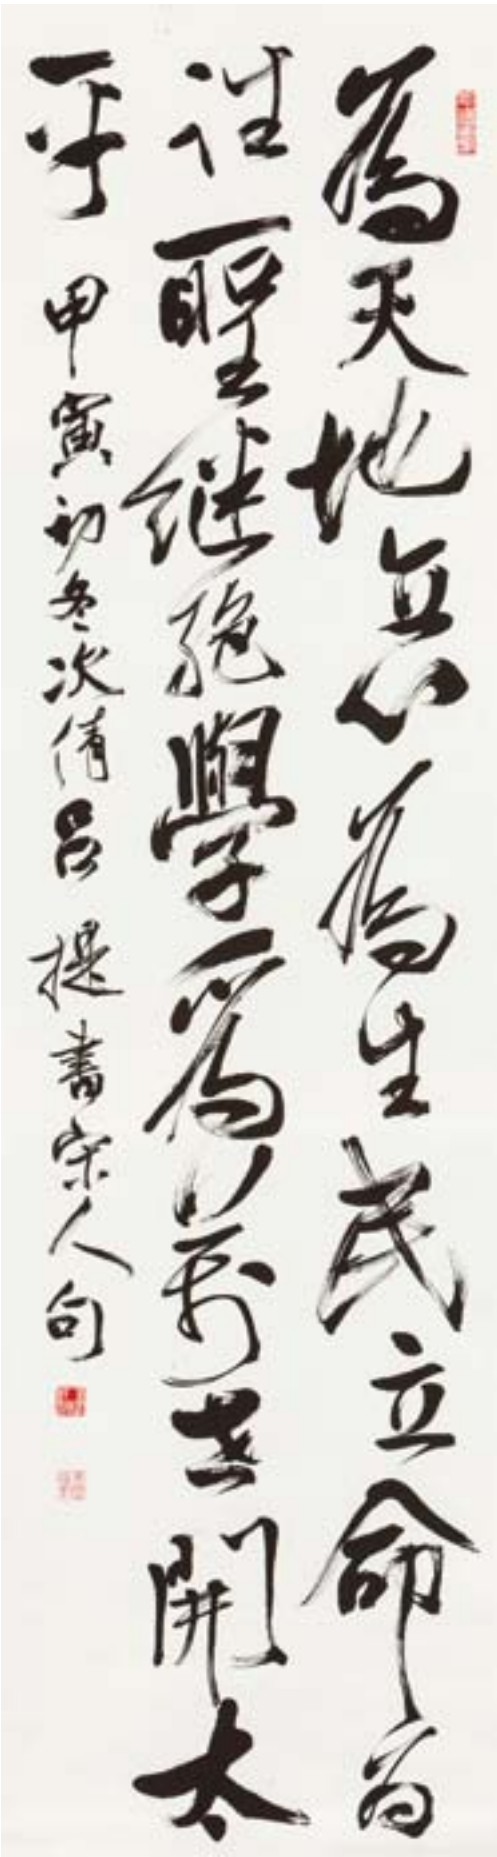 為天地立心為生民立命為
往聖继絕學為萬世開太
平 甲寅初冬次倩吕媞書宋人句